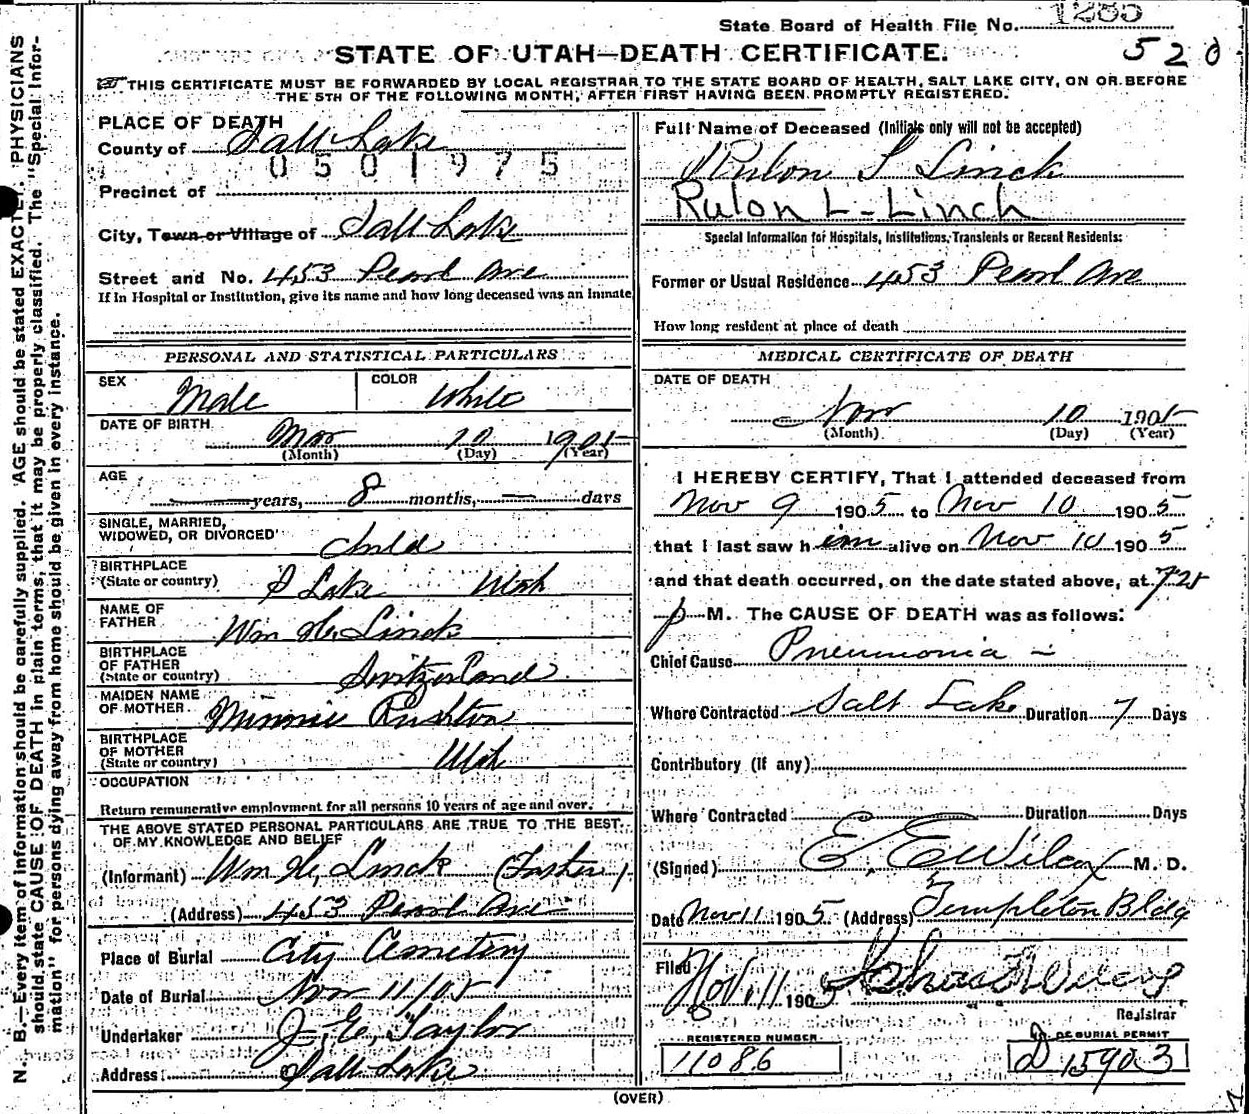 State Board of Health File No. 1285
520
STATE OF UTAH—DEATH CERTIFICATE.
THIS CERTIFICATE MUST BE FORWARDED BY LOCAL REGISTRAR TO THE STATE BOARD OF HEALTH, SALT LAKE CITY, ON OR BEFORE
THE 5TH OF THE FOLLOWING MONTH, AFTER FIRST HAVING BEEN PROMPTLY REGISTERED.
N. B.—Every item of information should be carefully supplied. AGE should be stated EXACTLY. PHYSICIANS
should state CAUSE OF DEATH in plain terms, that it may be properly classified. The "Special Infor-
mation" for persons dying away from home should be given in every instance.
PLACE OF DEATH
County of Salt Lake
0501975
Precinct of
City, Town or Village of Salt Lake
Street and No. 453 Pearl Ave
If in Hospital or Institution, give its name and how long deceased was an inmate
PERSONAL AND STATISTICAL PARTICULARS
SEX Male COLOR White
DATE OF BIRTH Mar 10 1905
(Month) (Day) (Year)
AGE
years, 8 months, — days
SINGLE, MARRIED,
WIDOWED, OR DIVORCED Child
BIRTHPLACE
(State or country) S Lake Utah
NAME OF
FATHER Wm H. Linck
BIRTHPLACE
OF FATHER
(State or country) Switzerland
MAIDEN NAME
OF MOTHER Minnie Rushton
BIRTHPLACE
OF MOTHER
(State or country) Utah
OCCUPATION
Return remunerative employment for all persons 10 years of age and over.
THE ABOVE STATED PERSONAL PARTICULARS ARE TRUE TO THE BEST
OF MY KNOWLEDGE AND BELIEF
(Informant) Wm H. Linck (Father)
(Address) 453 Pearl Ave
Place of Burial City Cemetery
Date of Burial Nov 11/05
Undertaker J. E. Taylor
Address Salt Lake
Full Name of Deceased (Initials only will not be accepted)
Rulon L Linck
Rulon L-Linch
Special Information for Hospitals, Institutions, Transients or Recent Residents:
Former or Usual Residence 453 Pearl Ave
How long resident at place of death
MEDICAL CERTIFICATE OF DEATH
DATE OF DEATH
Nov 10 1905
(Month) (Day) (Year)
I HEREBY CERTIFY, That I attended deceased from
Nov 9 1905 to Nov 10 1905
that I last saw him alive on Nov 10 1905
and that death occurred, on the date stated above, at 7.25
p M. The CAUSE OF DEATH was as follows:
Chief Cause Pneumonia —
Where Contracted Salt Lake Duration 7 Days
Contributory (if any)
Where Contracted Duration Days
(Signed) E. E. Wilcox M. D.
Date Nov 11 1905 (Address) Templeton Bldg
Filed Nov. 11 1905
Registrar
REGISTERED NUMBER
11086
BURIAL PERMIT
D 15903
(OVER)